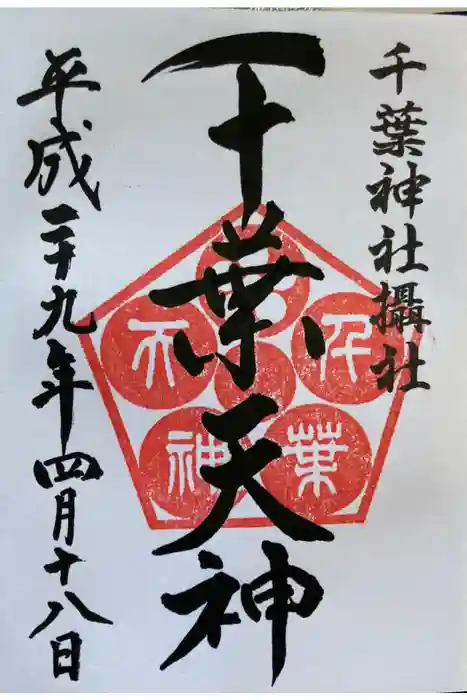 千葉神社攝社
千葉天神
平成二十九年四月十八日
千
葉
天
神